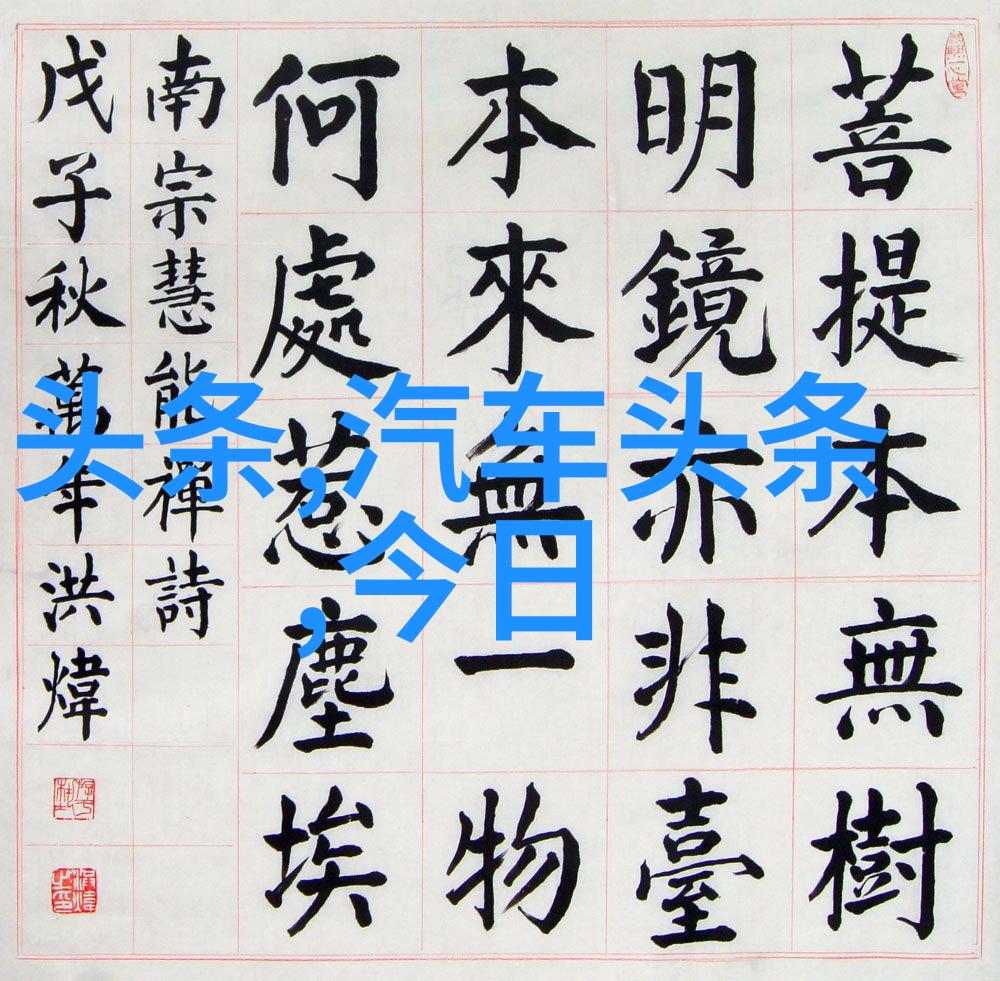 菩提本無樹
明鏡亦非臺
本來無一物
何處惹塵埃
南宗慧能禪詩
戊子秋萬年洪煒
头条,汽车头条
,今日